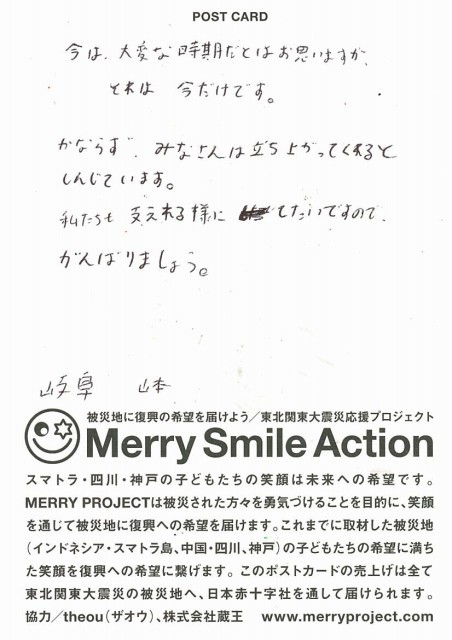 POST CARD
今は、大変な時期だとはお思いますが、
それは 今だけです。
かならず、みなさんは立ち上がってくれると
しんじています。
私たちも 支えれる様に したいですので、
がんばりましょう。
岐阜 山本
被災地に復興の希望を届けよう／東北関東大震災応援プロジェクト
Merry Smile Action
スマトラ・四川・神戸の子どもたちの笑顔は未来への希望です。
MERRY PROJECTは被災された方々を勇気づけることを目的に、笑顔
を通じて被災地に復興への希望を届けます。これまでに取材した被災地
（インドネシア・スマトラ島、中国・四川、神戸）の子どもたちの希望に満ち
た笑顔を復興への希望に繋げます。このポストカードの売上げは全て
東北関東大震災の被災地へ、日本赤十字社を通して届けられます。
協力／theou（ザオウ）、株式会社蔵王 www.merryproject.com